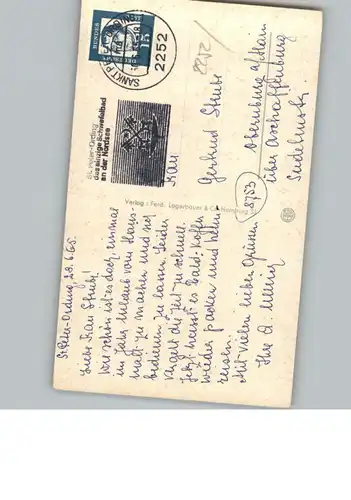 St. Peter-Ording, 28.6.65.
Liebe Frau Strub!
Wie schön ist es doch, einmal
im Jahr Urlaub vom Haus-
halt zu machen und sich
bedienen zu lassen. Leider
vergeht die Zeit zu schnell.
Jetzt heisst es bald Koffer
wieder packen und heim
reisen.
Mit vielen lieben Grüssen
Ihre
BUNDES
15
2252
SANKT PETER
St. Peter-Ording
das einzige Schwefelbad
an der Nordsee
2252
Frau
Gertrud Strub
8753
Obernburg a/Main
über Aschaffenburg
Verlag: Ferd. Lagerbauer & Co., Hamburg